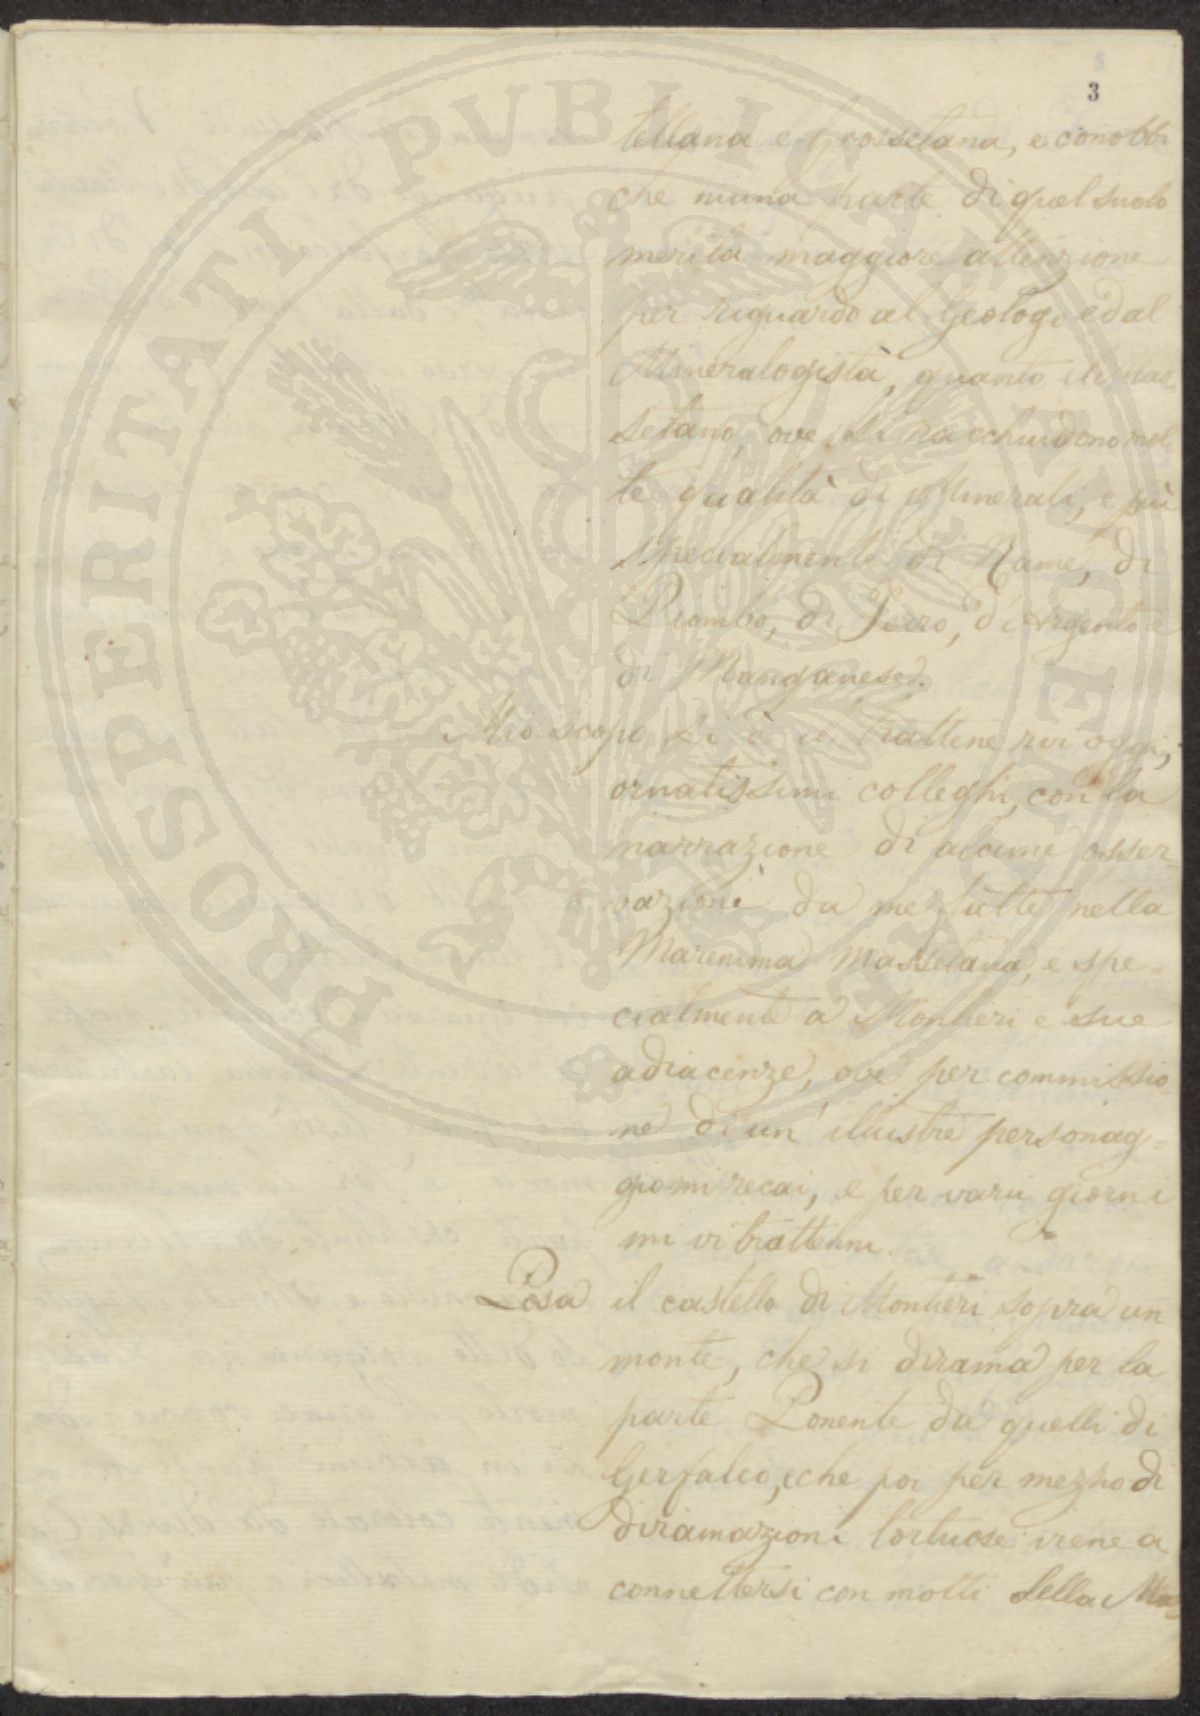 3
tellana e Grossetana, e conobbi
che niuna parte di quel suolo
merita maggiore attenzione
per riguardo al Geologo ed al
Mineralogista, quanto il Mas=
setano, ove si racchiudono mol
te qualità di Minerali, e più
specialmente di Rame, di
Piombo, di Ferro, d'Argento e
di Manganese.
Mio scopo si è di trattenervi oggi,
ornatissimi colleghi, con la
narrazione di alcune osser=
vazioni da me fatte nella
Maremma Massetana, e spe=
cialmente a Montieri e sue
adiacenze, ove per commissio
ne di un' illustre personag=
gio mi recai, e per varii giorni
mi vi trattenni.
Posa il castello di Montieri sopra un
monte, che si dirama per la
parte Ponente da quelli di
Gerfalco, e che poi per mezzo di
diramazioni tortuose viene a
connettersi con molti della Ma=
PROSPERITATI PUBLICAE AUGENDAE